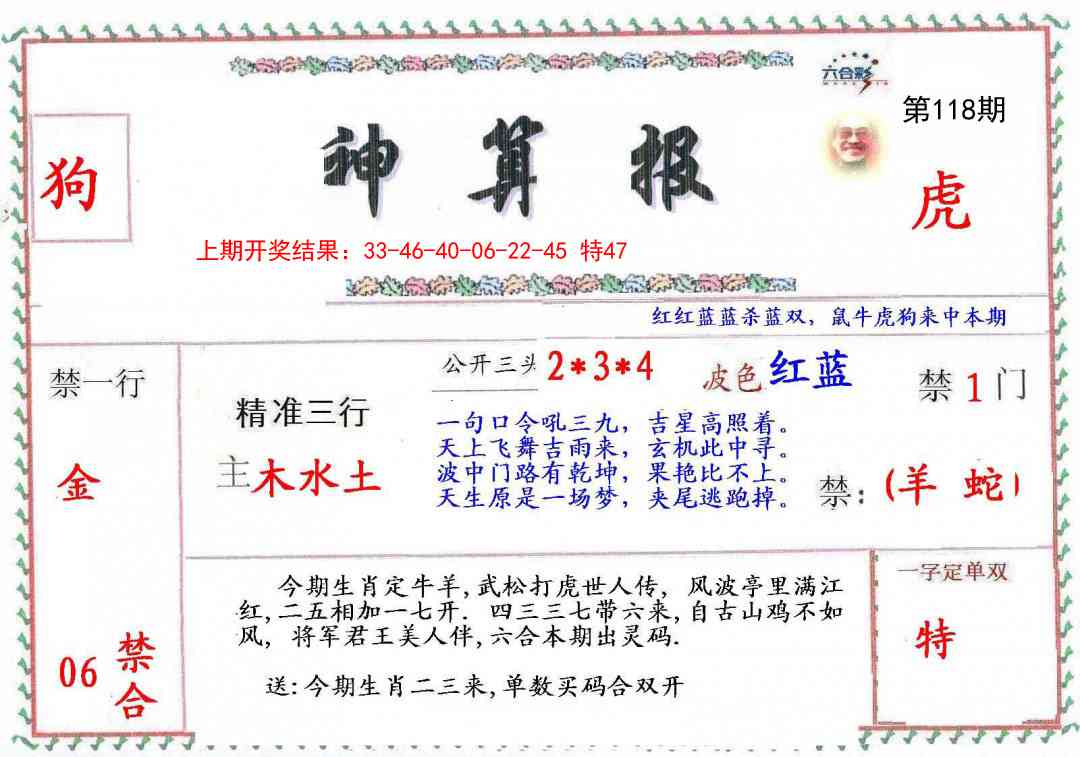 六合彩
第118期
神算报
狗
虎
上期开奖结果：33-46-40-06-22-45 特47
红红蓝蓝杀蓝双，鼠牛虎狗来中本期
禁一行
金
06
禁合
精准三行
主木水土
公开三头 2*3*4
波色 红蓝
一句口令吼三九，吉星高照着。
天上飞舞吉雨来，玄机此中寻。
波中门路有乾坤，果艳比不上。
天生原是一场梦，夹尾逃跑掉。
禁1门
禁：(羊 蛇)
今期生肖定牛羊,武松打虎世人传，风波亭里满江
红,二五相加一七开．四三三七带六来,自古山鸡不如
风，将军君王美人伴,六合本期出灵码.
送:今期生肖二三来,单数买码合双开
一字定单双
特